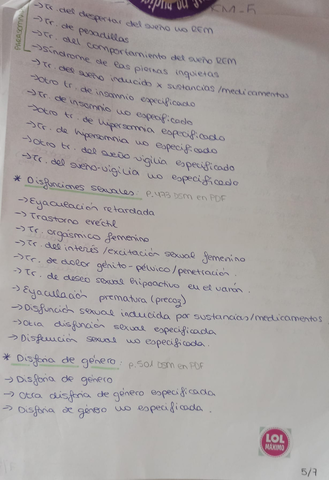 → Tr. del despertar del sueño no REM
→ Tr. de pesadillas
→ Tr. del comportamiento del sueño REM
→ Síndrome de las piernas inquietas
→ Tr. del sueño inducido x sustancias/medicamentos
→ Otro tr. de insomnio especificado
→ Tr. de insomnio no especificado
→ Otro tr. de hipersomnia especificado
→ Tr. de hipersomnia no especificado
→ Otro tr. del sueño vigilia especificado
→ Tr. del sueño-vigilia no especificado
* Disfunciones sexuales: P.493 DSM en PDF
→ Eyaculación retardada
→ Trastorno eréctil
→ Tr. orgásmico femenino
→ Tr. del interés/excitación sexual femenino
→ Tr. de dolor génito-pélvico/penetración.
→ Tr. de deseo sexual hipoactivo en el varón.
→ Eyaculación prematura (precoz)
→ Disfunción sexual inducida por sustancias/medicamentos
→ Otra disfunción sexual especificada
→ Disfunción sexual no especificada.
* Disforia de género: p.501 DSM en PDF
→ Disforia de género
→ Otra disforia de género especificada
→ Disforia de género no especificada.
LOL
MÁXIMO
5/7